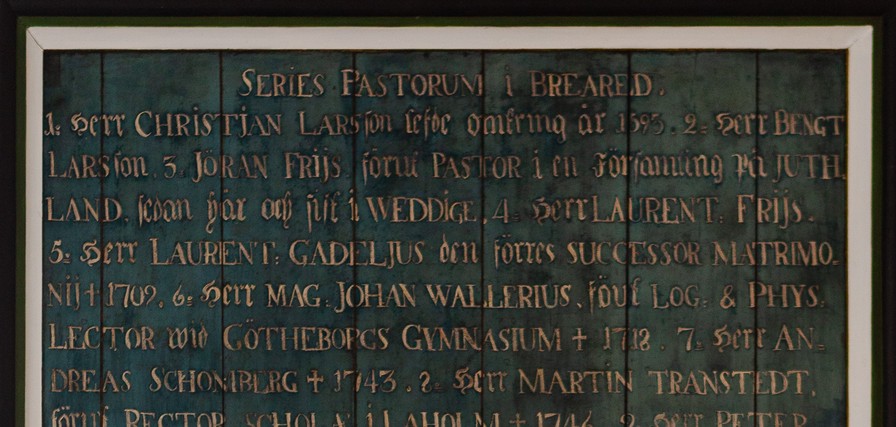 SERIES PASTORUM i BREARED.
1: Herr CHRISTJAN LARSson lefde omkring år 1593. 2: Herr BENGT
LARSson. 3. JÖRAN FRIJS förut PASTOR i en Församling på JUTH,
LAND, sedan här och sist i WEDDiGE. 4: Herr LAURENT: FRijs.
5: Herr LAURENT: GADELJUS den förres SUCCESSOR MATRIMO:
Nij † 1709. 6: Herr MAG: JOHAN WALLERIUS, förut LOG: & PHYS:
LECTOR wid GÖTHEBORGS GYMNASIUM † 1718. 7: Herr AN:
DREAS SCHONBERG † 1743. 8: Herr MARTIN TRANSTEDT,
förut RECTOR SCHOLÆ i LAHOLM † 1746. 9: Herr PETER